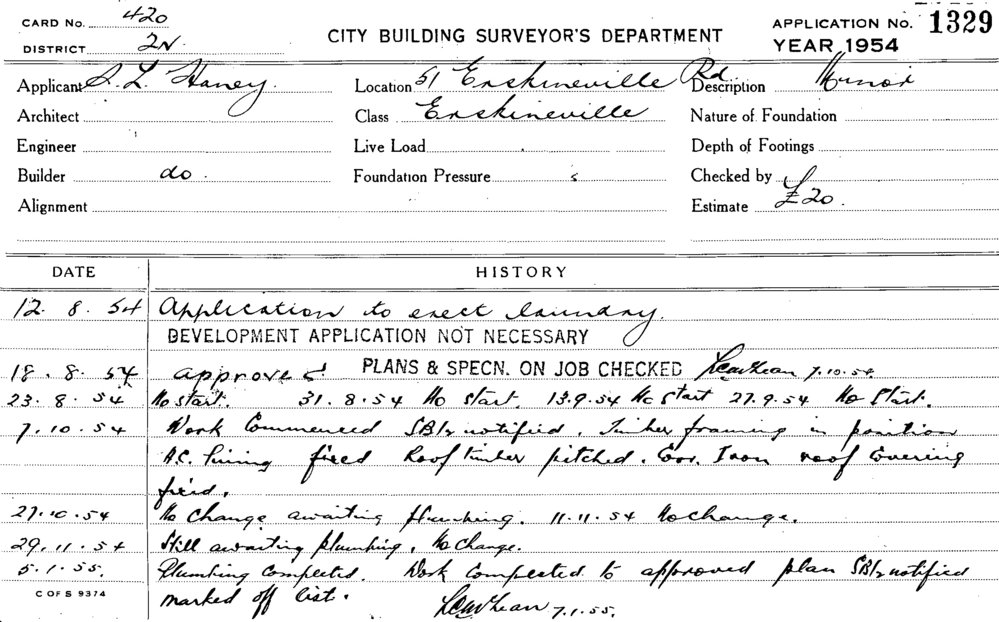 CARD No. 420
DISTRICT 2N
CITY BUILDING SURVEYOR'S DEPARTMENT
APPLICATION No. 1329
YEAR 1954
Applicant L. Haney. Location 51 Erskineville Rd Description Minor
Architect Class Erskineville Nature of Foundation
Engineer Live Load Depth of Footings
Builder do. Foundation Pressure Checked by
Alignment Estimate £20.
DATE HISTORY
12. 8. 54 Application to erect laundry.
DEVELOPMENT APPLICATION NOT NECESSARY
18. 8. 54 approved PLANS & SPECN. ON JOB CHECKED 7.10.54.
23. 8. 54 No start. 31. 8. 54 No start. 13.9.54 No start 27.9.54 No start.
7. 10. 54 Work Commenced notified. Timber framing in position
A.C. lining fixed Roof timber pitched. Cor. Iron roof Covering
fixed.
27. 10. 54 No Change awaiting plumbing. 11.11.54 No change.
29. 11. 54 Still awaiting plumbing. No change.
5. 1. 55. Plumbing completed. Work Completed to approved plan notified
marked off list. 7.1.55.
C OF S 9374